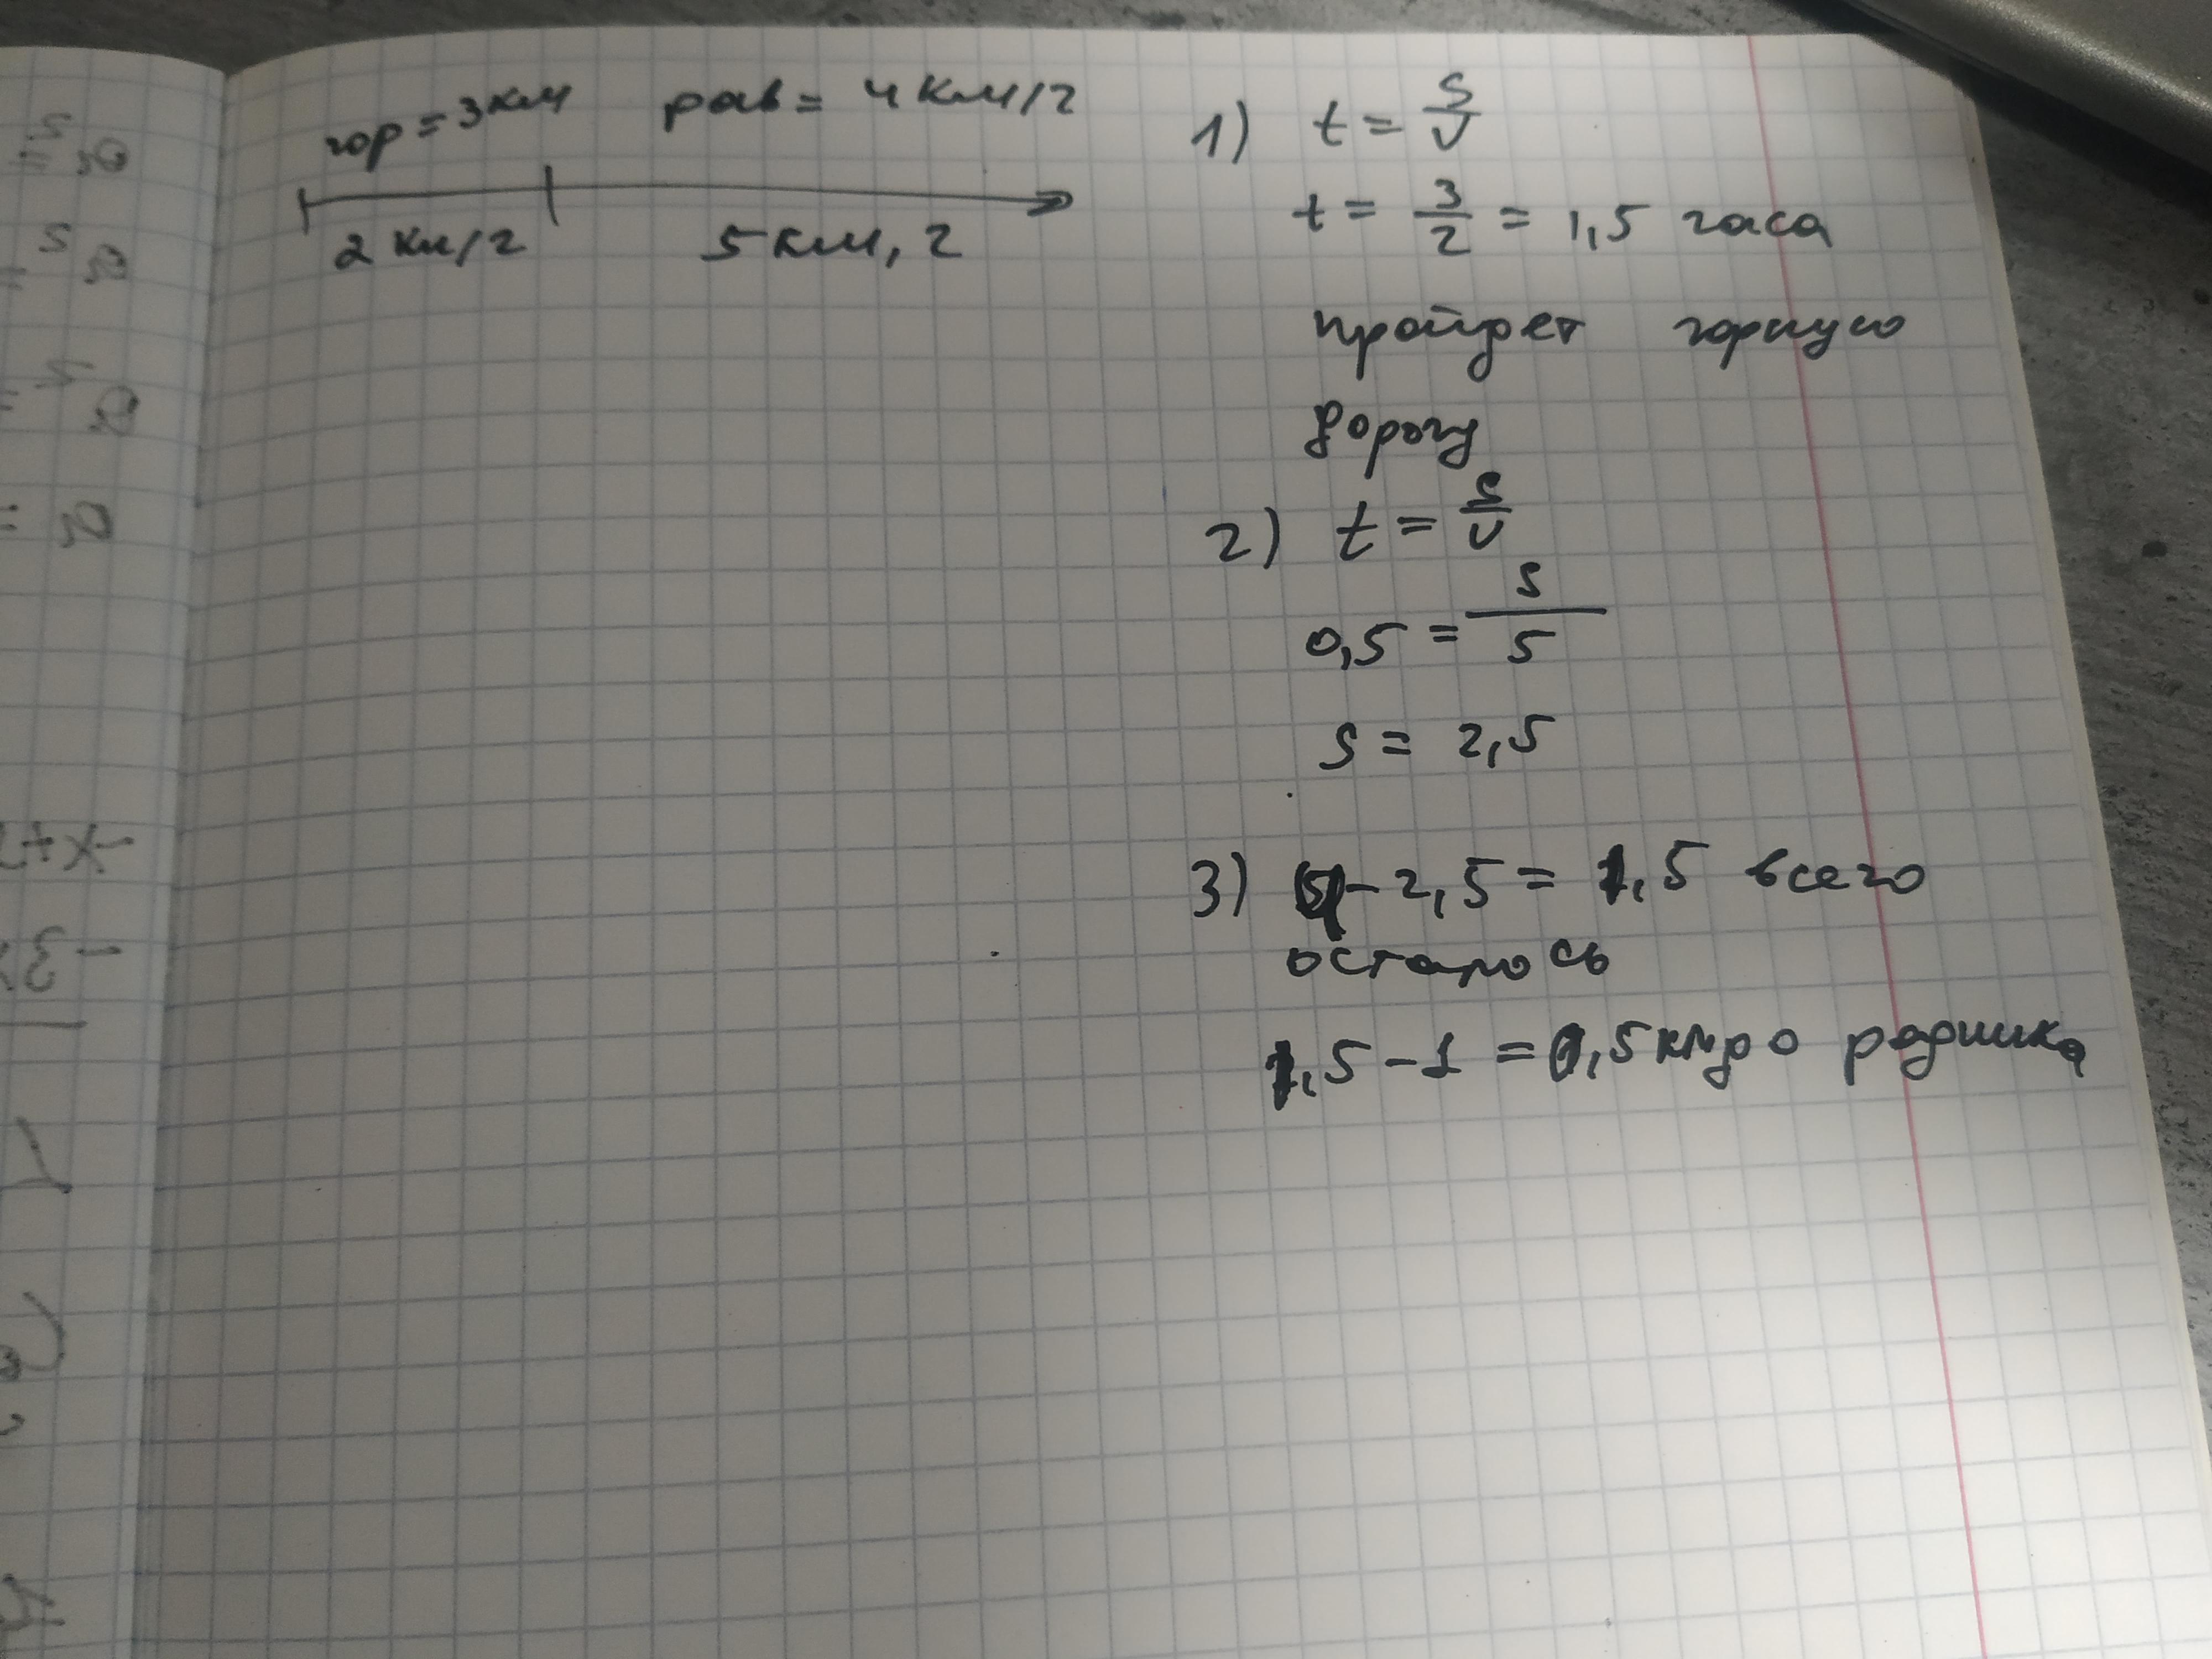 гор = 3 км рав = 4 км/ч
2 км/ч 5 км, ч
1) t = S/V
t = 3/2 = 1,5 часа
пройдет горную
дорогу
2) t = S/V
0,5 = S/5
S = 2,5
3) 4 - 2,5 = 1,5 всего
осталось
1,5 - 1 = 0,5 км до родника